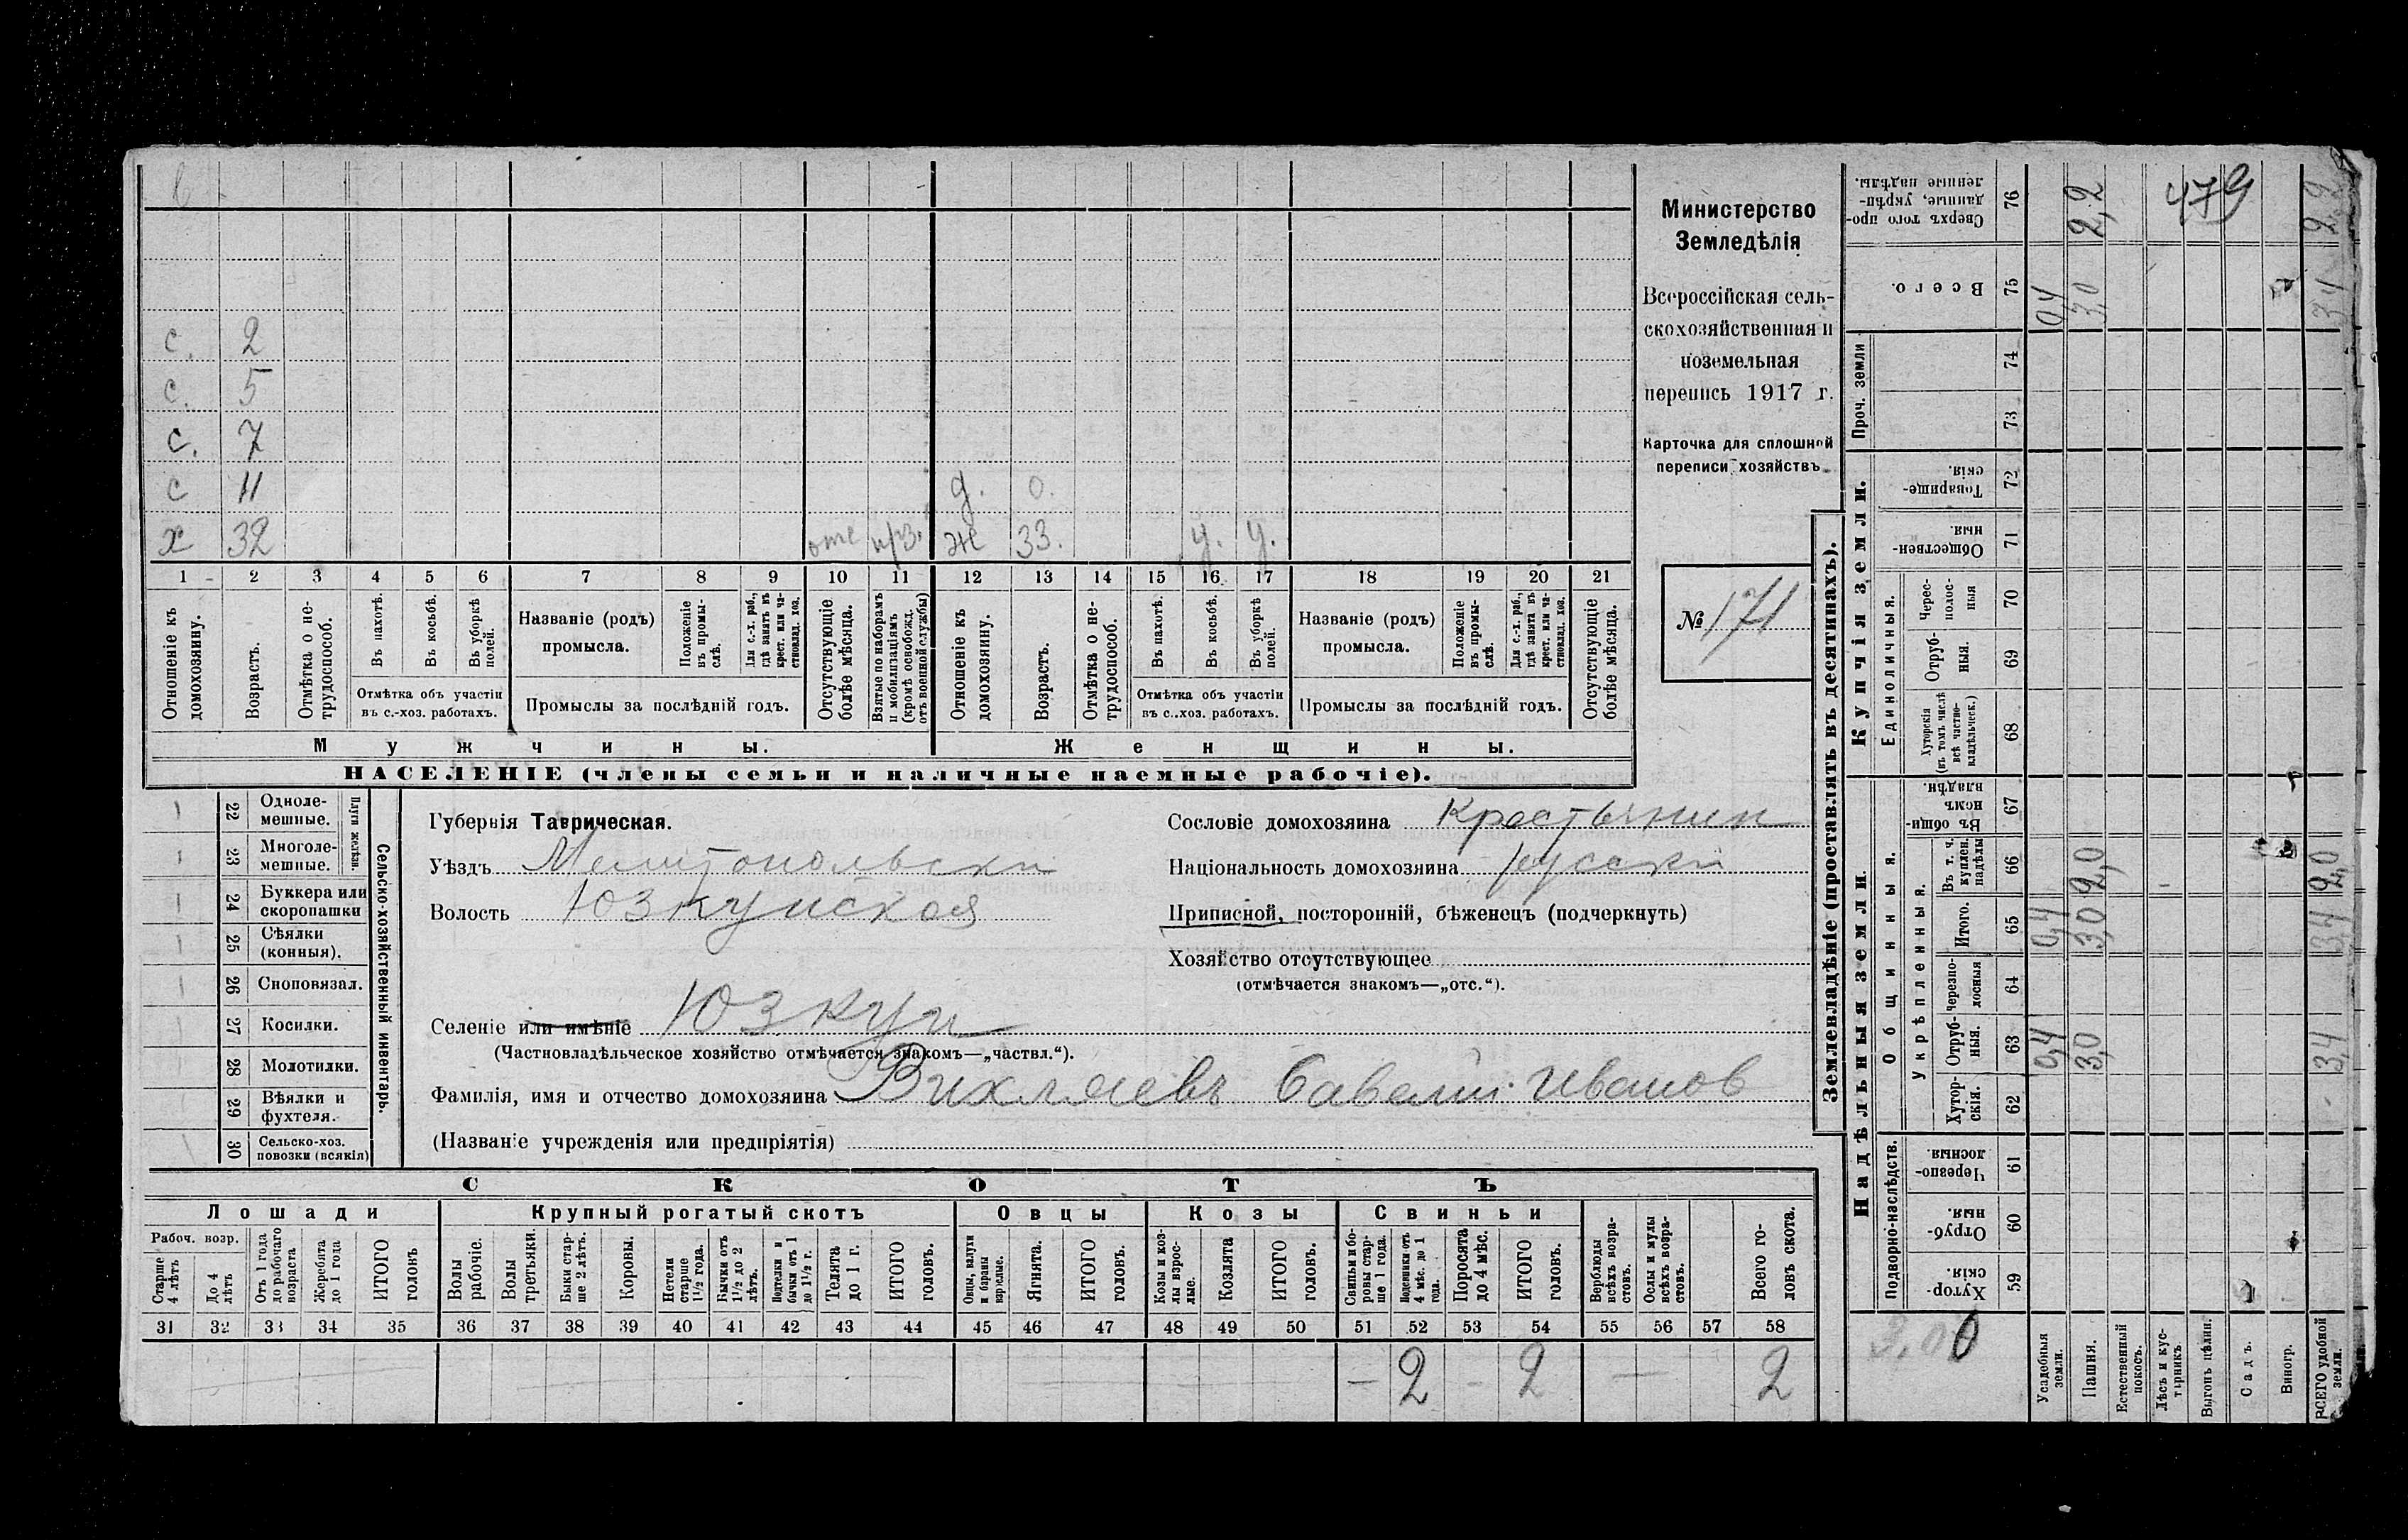 с. 2
с. 5
с. 7
с 11 д. о.
х 32 отс прз. ж 33. у. у.
1 2 3 4 5 6 7 8 9 10 11 12 13 14 15 16 17 18 19 20 21
Отношеніе къ домохозяину.
Возрастъ.
Отмѣтка о не-трудоспособ.
Въ пахотѣ.
Въ косьбѣ.
Въ уборкѣ полей.
Отмѣтка объ участіи
въ с.-хоз. работахъ.
Названіе (родъ)
промысла.
Положеніе въ промы-слѣ.
Для с.-х. раб., гдѣ занятъ въ крест. или ча-стновлад. хоз.
Промыслы за послѣдній годъ.
Отсутствующіе болѣе мѣсяца.
Взятые по наборамъ и мобилизаціямъ (кромѣ освобожд. отъ военной службы)
Отношеніе къ домохозяину.
Возрастъ.
Отмѣтка о не-трудоспособ.
Въ пахотѣ.
Въ косьбѣ.
Въ уборкѣ полей.
Отмѣтка объ участіи
въ с.-хоз. работахъ.
Названіе (родъ)
промысла.
Положеніе въ промы-слѣ.
Для с.-х. раб., гдѣ занята въ крест. или ча-стновлад. хоз.
Промыслы за послѣдній годъ.
Отсутствующіе болѣе мѣсяца.
Мужчины. Женщины.
НАСЕЛЕНІЕ (члены семьи и наличные наемные рабочіе).
Министерство
Земледѣлія
Всероссійская сель-
скохозяйственная и
поземельная
перепись 1917 г.
Карточка для сплошной
переписи хозяйствъ
№ 171
22 Одноле-мешные.
23 Многоле-мешные.
Плуги желѣзн.
24 Буккера или скоропашки
25 Сѣялки (конныя).
26 Сноповязал.
27 Косилки.
28 Молотилки.
29 Вѣялки и фухтеля.
30 Сельско-хоз. повозки (всякія)
Сельско-хозяйственный инвентарь.
Губернія Таврическая.
Уѣздъ Мелитопольски
Волость Юзкуйская
Селеніе или имѣніе Юзкуи
(Частновладѣльческое хозяйство отмѣчается знакомъ—„частвл.“).
Фамилія, имя и отчество домохозяина Вихляевъ Савелій Иванов
(Названіе учрежденія или предпріятія)
Сословіе домохозяина Крестьянин
Національность домохозяина русски
Приписной, посторонній, бѣженецъ (подчеркнуть)
Хозяйство отсутствующее
(отмѣчается знакомъ—„отс.“).
СКОТЪ
Лошади Крупный рогатый скотъ Овцы Козы Свиньи
Рабоч. возр.
Старше 4 лѣтъ
До 4 лѣтъ
Отъ 1 года до рабочаго возраста
Жеребята до 1 года
ИТОГО головъ
Волы рабочіе.
Волы третьяки.
Быки стар-ше 2 лѣтъ.
Коровы.
Нетели старше 1½ года.
Бычки отъ 1½ до 2 лѣтъ.
Подтелки и бычки отъ 1 до 1½ г.
Телята до 1 г.
ИТОГО головъ.
Овцы, валухи и бараны взрослые.
Ягнята.
ИТОГО головъ.
Козы и коз-лы взрос-лые.
Козлята
ИТОГО головъ.
Свиньи и бо-ровы стар-ше 1 года.
Подсвинки отъ 4 мѣс. до 1 года.
Поросята до 4 мѣс.
ИТОГО головъ.
Верблюды всѣхъ возра-стовъ.
Ослы и мулы всѣхъ возра-стовъ.
Всего го-ловъ скота.
31 32 33 34 35 36 37 38 39 40 41 42 43 44 45 46 47 48 49 50 51 52 53 54 55 56 57 58
— 2 — 2 — 2
Землевладѣніе (проставлять въ десятинахъ).
Надѣльныя земли. Купчія земли. Проч. земли
Подворно-наслѣдств. Общинныя. Единоличныя.
Укрѣпленныя.
59 Хутор-скія.
60 Отруб-ныя.
61 Черезпо-лосныя.
62 Хутор-скія.
63 Отруб-ныя.
64 Черезпо-лосныя
65 Итого.
66 Въ т. ч. куплен. надѣлы
67 Въ общин-номъ владѣн.
68 Хуторскія (въ томъ числѣ всѣ частно-владѣльческ.)
69 Отруб-ныя.
70 Черес-полос-ныя
71 Обществен-ныя
72 Товарище-скія.
73
74
75 Всего.
76 Сверхъ того про-данные, укрѣп-ленные надѣлы.
3,00
Усадебныя земли. 0,4 0,4 0,4
Пашня. 3,0 3,0 2,0 3,0 2,2
Естественный покосъ.
Лѣсъ и кус-тарникъ. 479
Выгонъ цѣлин.
Садъ.
Виногр.
ВСЕГО удобной земли. 3,4 3,4 2,0 3,4 2,2